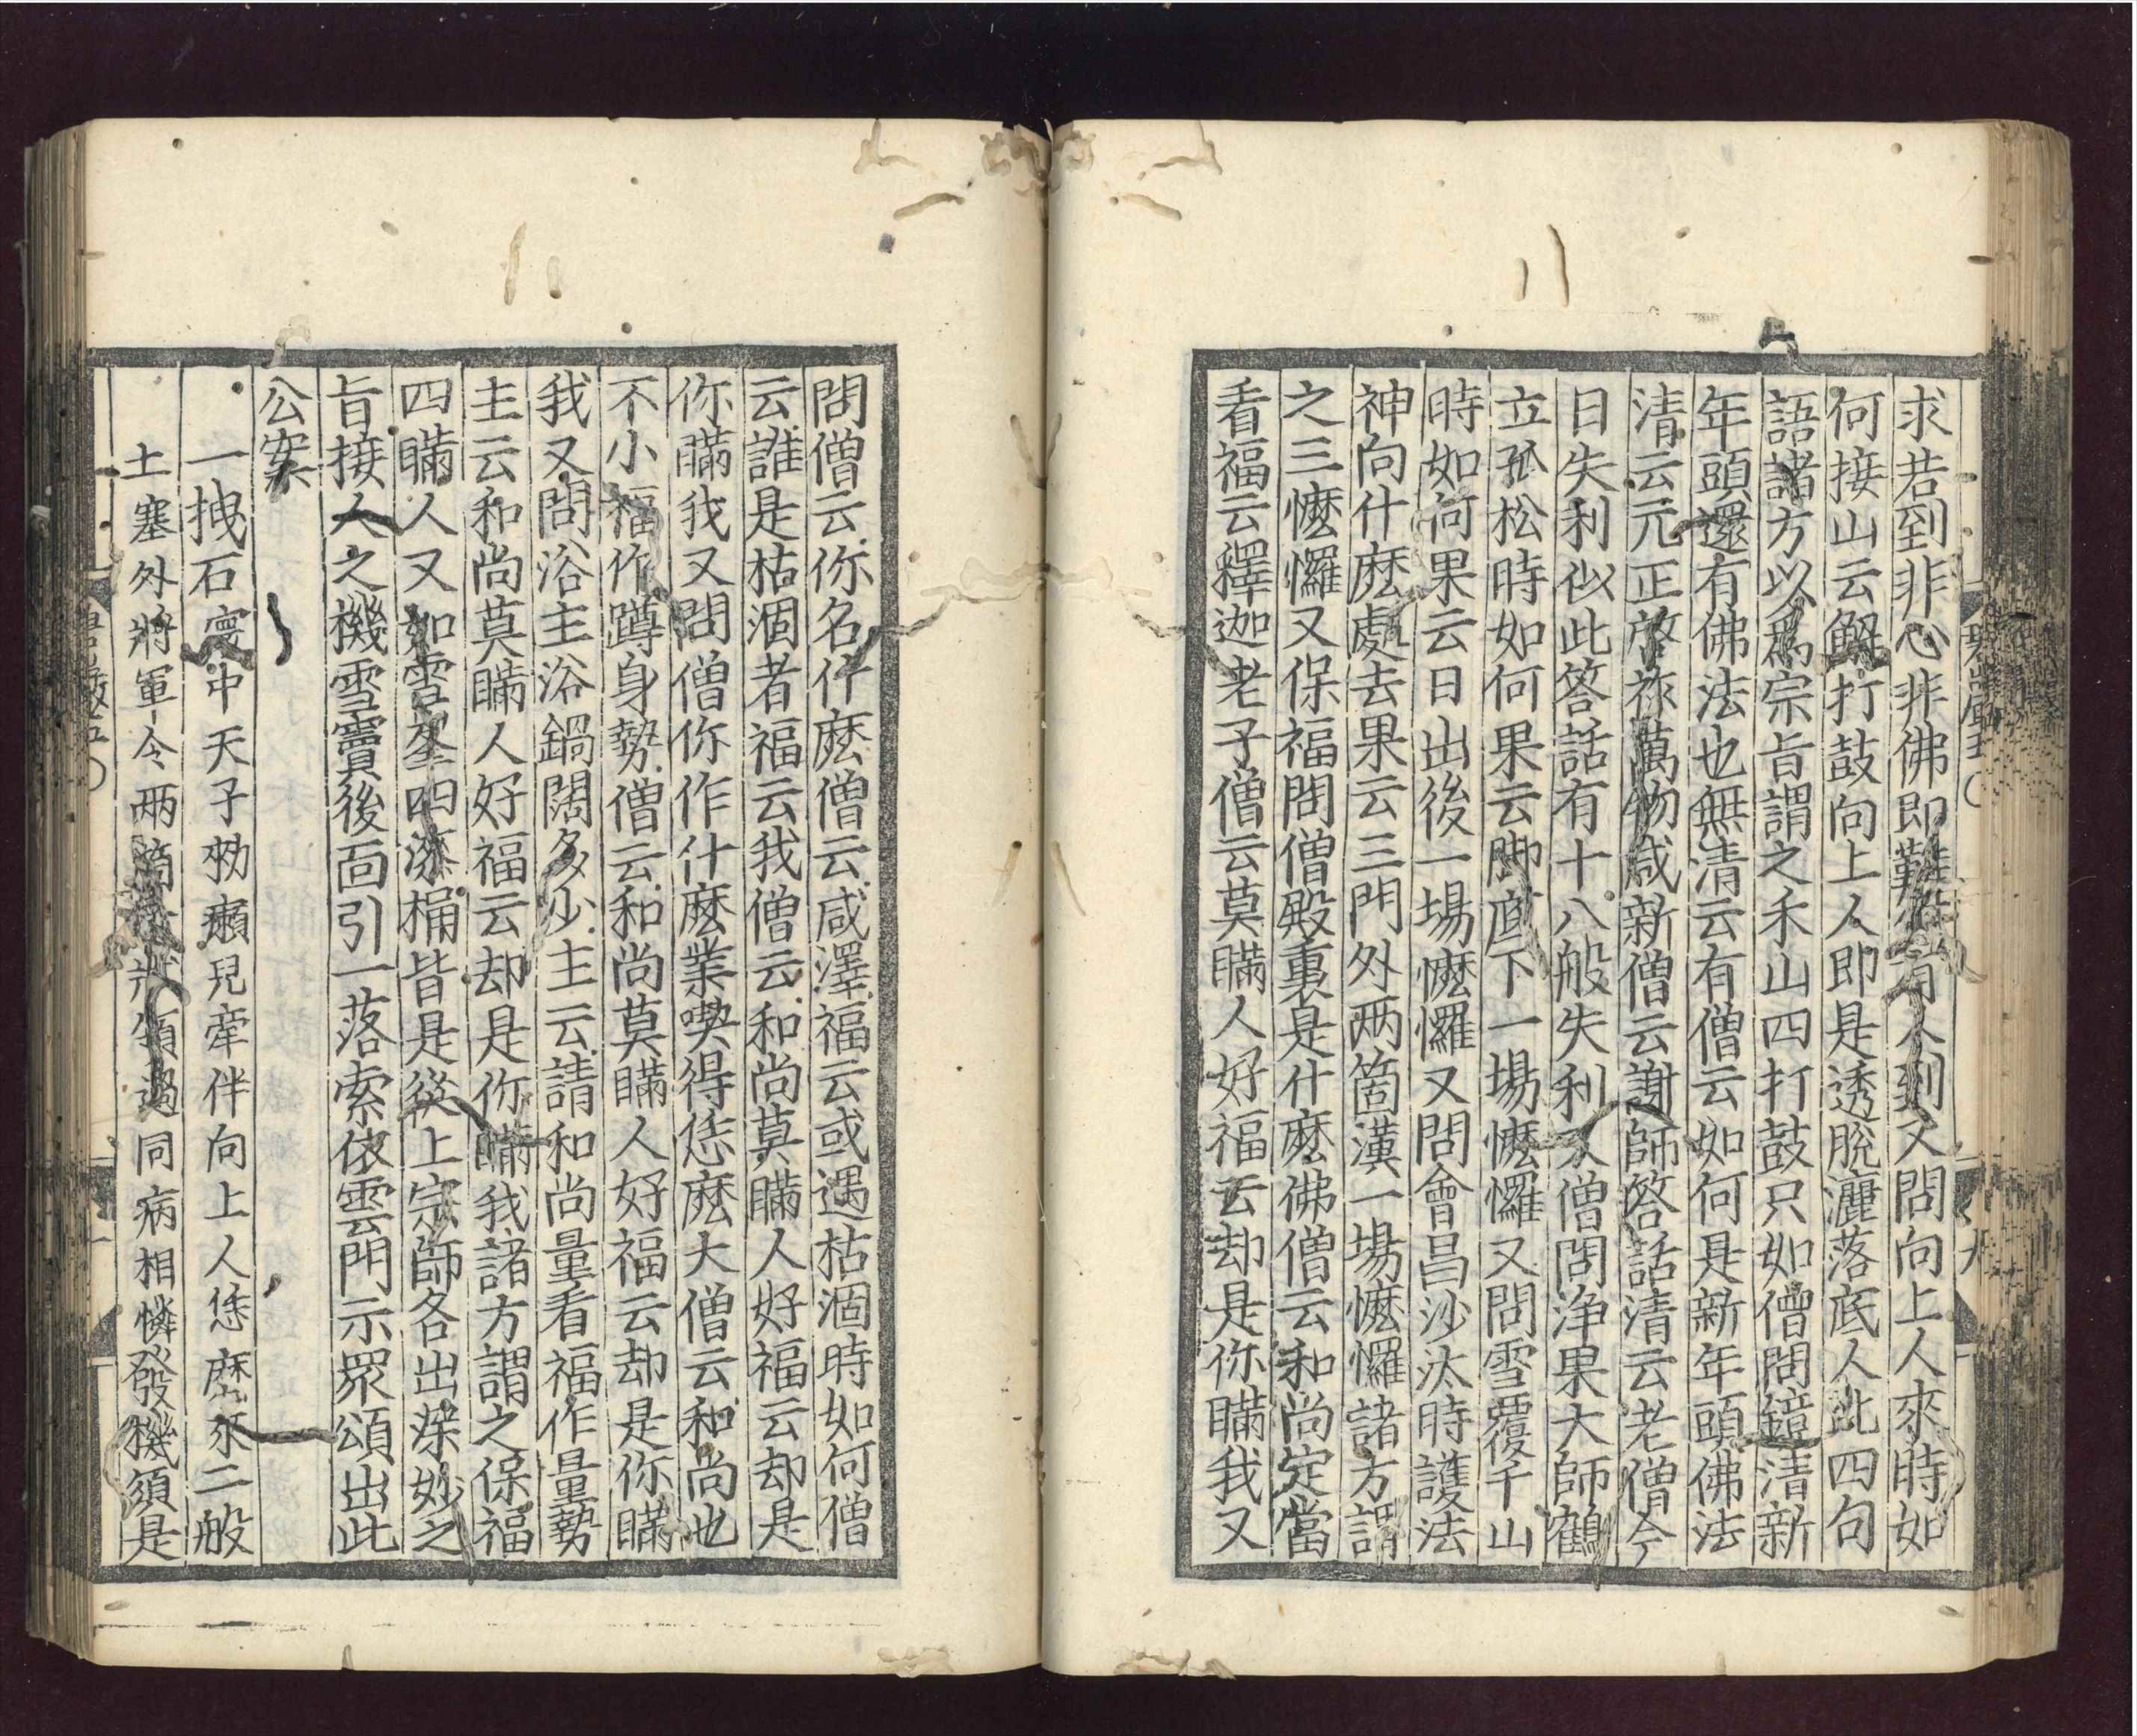 求若到非心非佛即難有人到又問向上人來時如
何接山云解打鼓向上人即是透脫灑落底人此四句
語諸方以爲宗旨謂之禾山四打鼓只如僧問鏡清新
年頭還有佛法也無清云有僧云如何是新年頭佛法
清云元正啓祚萬物咸新僧云謝師答話清云老僧今
日失利似此答話有十八般失利又僧問淨果大師鶴
立孤松時如何果云脚底下一場懡㦬又問雪覆千山
時如何果云日出後一場懡㦬又問會昌沙汰時護法
神向什麽處去果云三門外兩箇漢一場懡㦬諸方謂
之三懡㦬又保福問僧殿裏是什麽佛僧云和尚定當
看福云釋迦老子僧云莫瞞人好福云却是你瞞我又
問僧云你名什麽僧云咸澤福云或遇枯涸時如何僧
云誰是枯涸者福云我僧云和尚莫瞞人好福云却是
你瞞我又問僧你作什麽業喫得恁麽大僧云和尚也
不小福作蹲身勢僧云和尚莫瞞人好福云却是你瞞
我又問浴主浴鍋闊多少主云請和尚量看福作量勢
主云和尚莫瞞人好福云却是你瞞我諸方謂之保福
四瞞人又如雪峯四漆桶皆是從上宗師各出深妙之
旨接人之機雪竇後面引一落索依雲門示眾頌出此
公案
一拽石寰中天子勑癩兒牽伴向上人恁麽來二般
土塞外將軍令兩箇一狀領過同病相憐發機須是